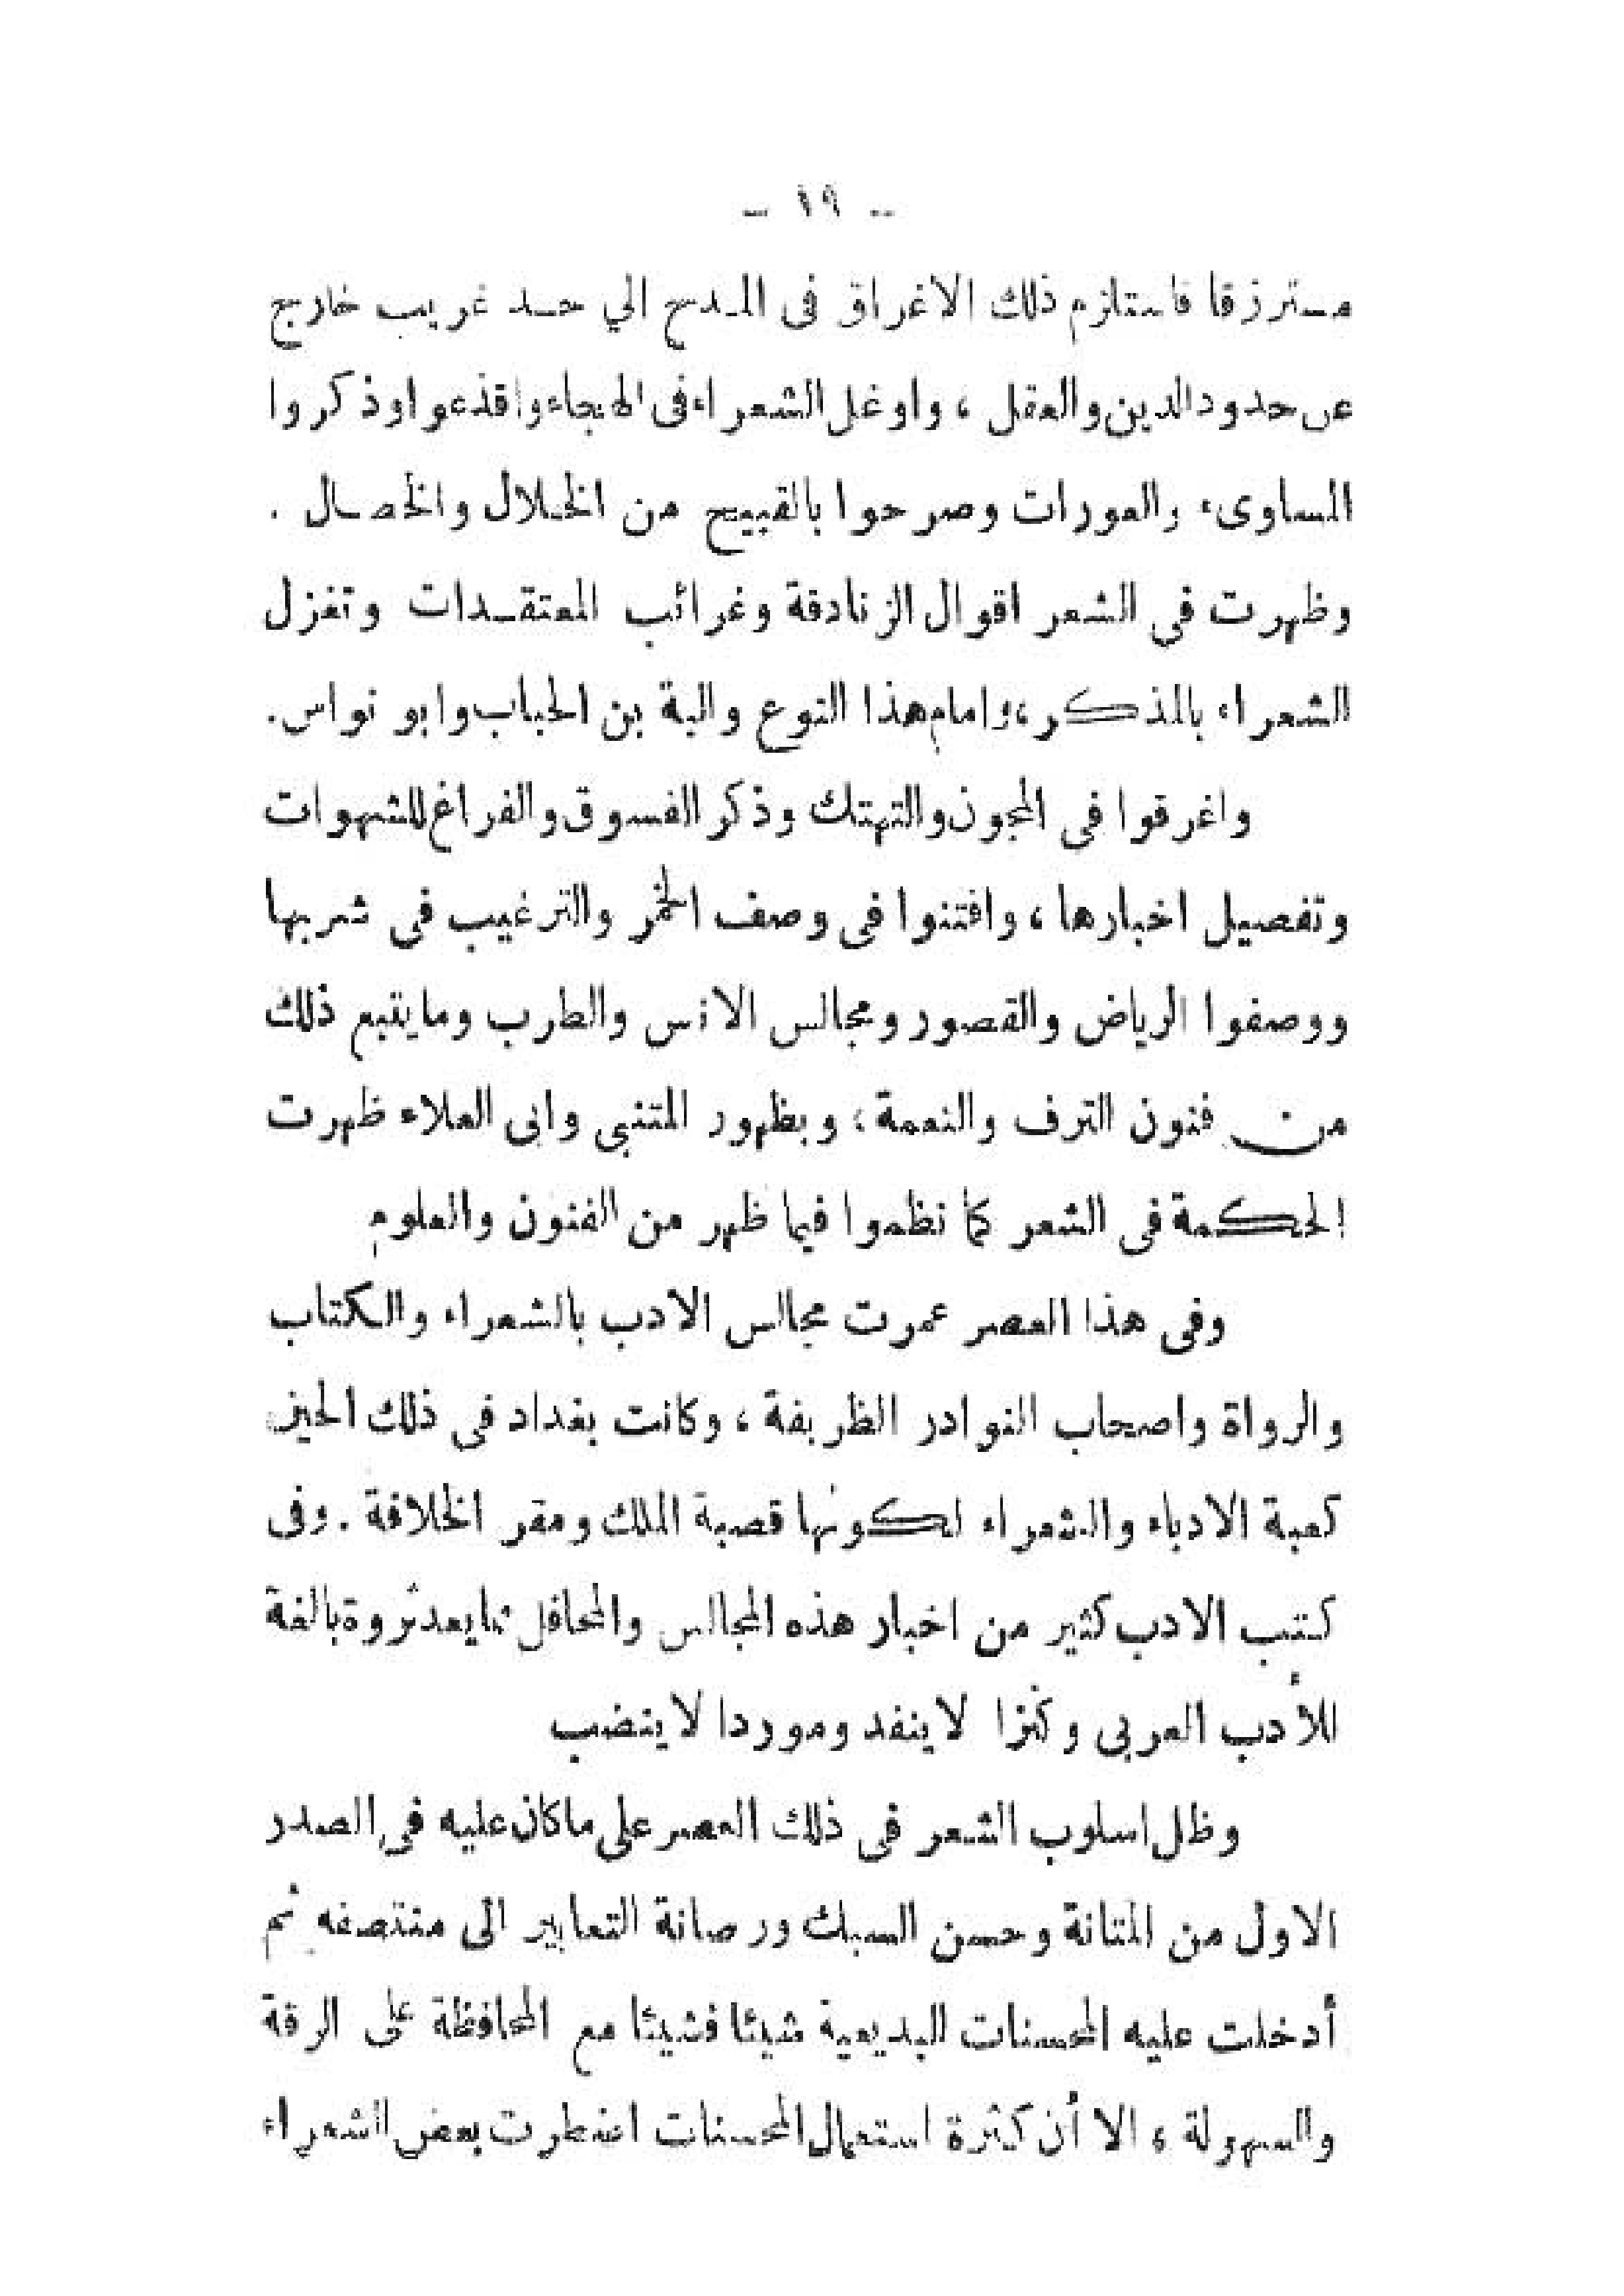 - ١٩ -
مسترزقا فاستلزم ذلك الاغراق فى المدح الي حد غريب خارج
عن حدود الدين والعقل ، واوغل الشعراء فى الهجاء واقذعوا وذكروا
المساوىء والعورات وصرحوا بالقبيح من الخلال والخصال .
وظهرت فى الشعر اقوال الزنادقة وغرائب المعتقدات وتغزل
الشعراء بالمذكر، وامام هذا النوع والبة بن الحباب وابو نواس.
واغرقوا فى المجون والتهتك وذكر الفسوق والفراغ للشهوات
وتفصيل اخبارها ، وافتنوا فى وصف الخمر والترغيب فى شربها
ووصفوا الرياض والقصور ومجالس الانس والطرب وما يتبع ذلك
من فنون الترف والنعمة ، وبظهور المتنبي وابى العلاء ظهرت
الحكمة فى الشعر كما نظموا فيما ظهر من الفنون والعلوم
وفى هذا العصر عمرت مجالس الادب بالشعراء والكتاب
والرواة واصحاب النوادر الظريفة ، وكانت بغداد فى ذلك الحين
كعبة الادباء والشعراء لكونها قصبة الملك ومقر الخلافة . وفى
كتب الادب كثير من اخبار هذه المجالس والمحافل مما يعد ثروة بالغة
للأدب العربى وكنزا لا ينفد وموردا لا ينضب
وظل اسلوب الشعر فى ذلك العصر على ما كان عليه فى الصدر
الاول من المتانة وحسن السبك ورصانة التعابير الى منتصفه ثم
أدخلت عليه المحسنات البديعية شيئا فشيئا مع المحافظة على الرقة
والسهولة ، الا أن كثرة استعمال المحسنات اضطرت بعض الشعراء